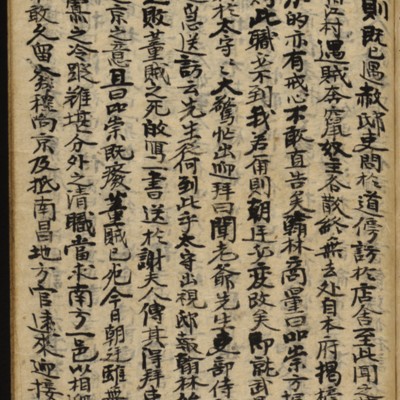 則既已遇赦邸吏問於道傍訪於店舍至此聞之
村遇賊奔竄奴主各散終無去處自本府揭榜
的亦有戒心不敢直告矣翰林商量曰崇方據
則此職必不到我若爾則朝廷必變改矣即詣武
於太守々大驚忙出迎拜曰聞老爺先生吏部侍
急送訪云先生從何到此乎太守出視邸報翰林始
之敗董賊之死故寫一書送於謝夫人傳其得拜
京之意且曰崇既發董賊已死今日朝廷雖無
之冷蹤難堪分外之清職當求南方一邑以相迎
敢久留發程向京及抵南昌地方官遠來迎接